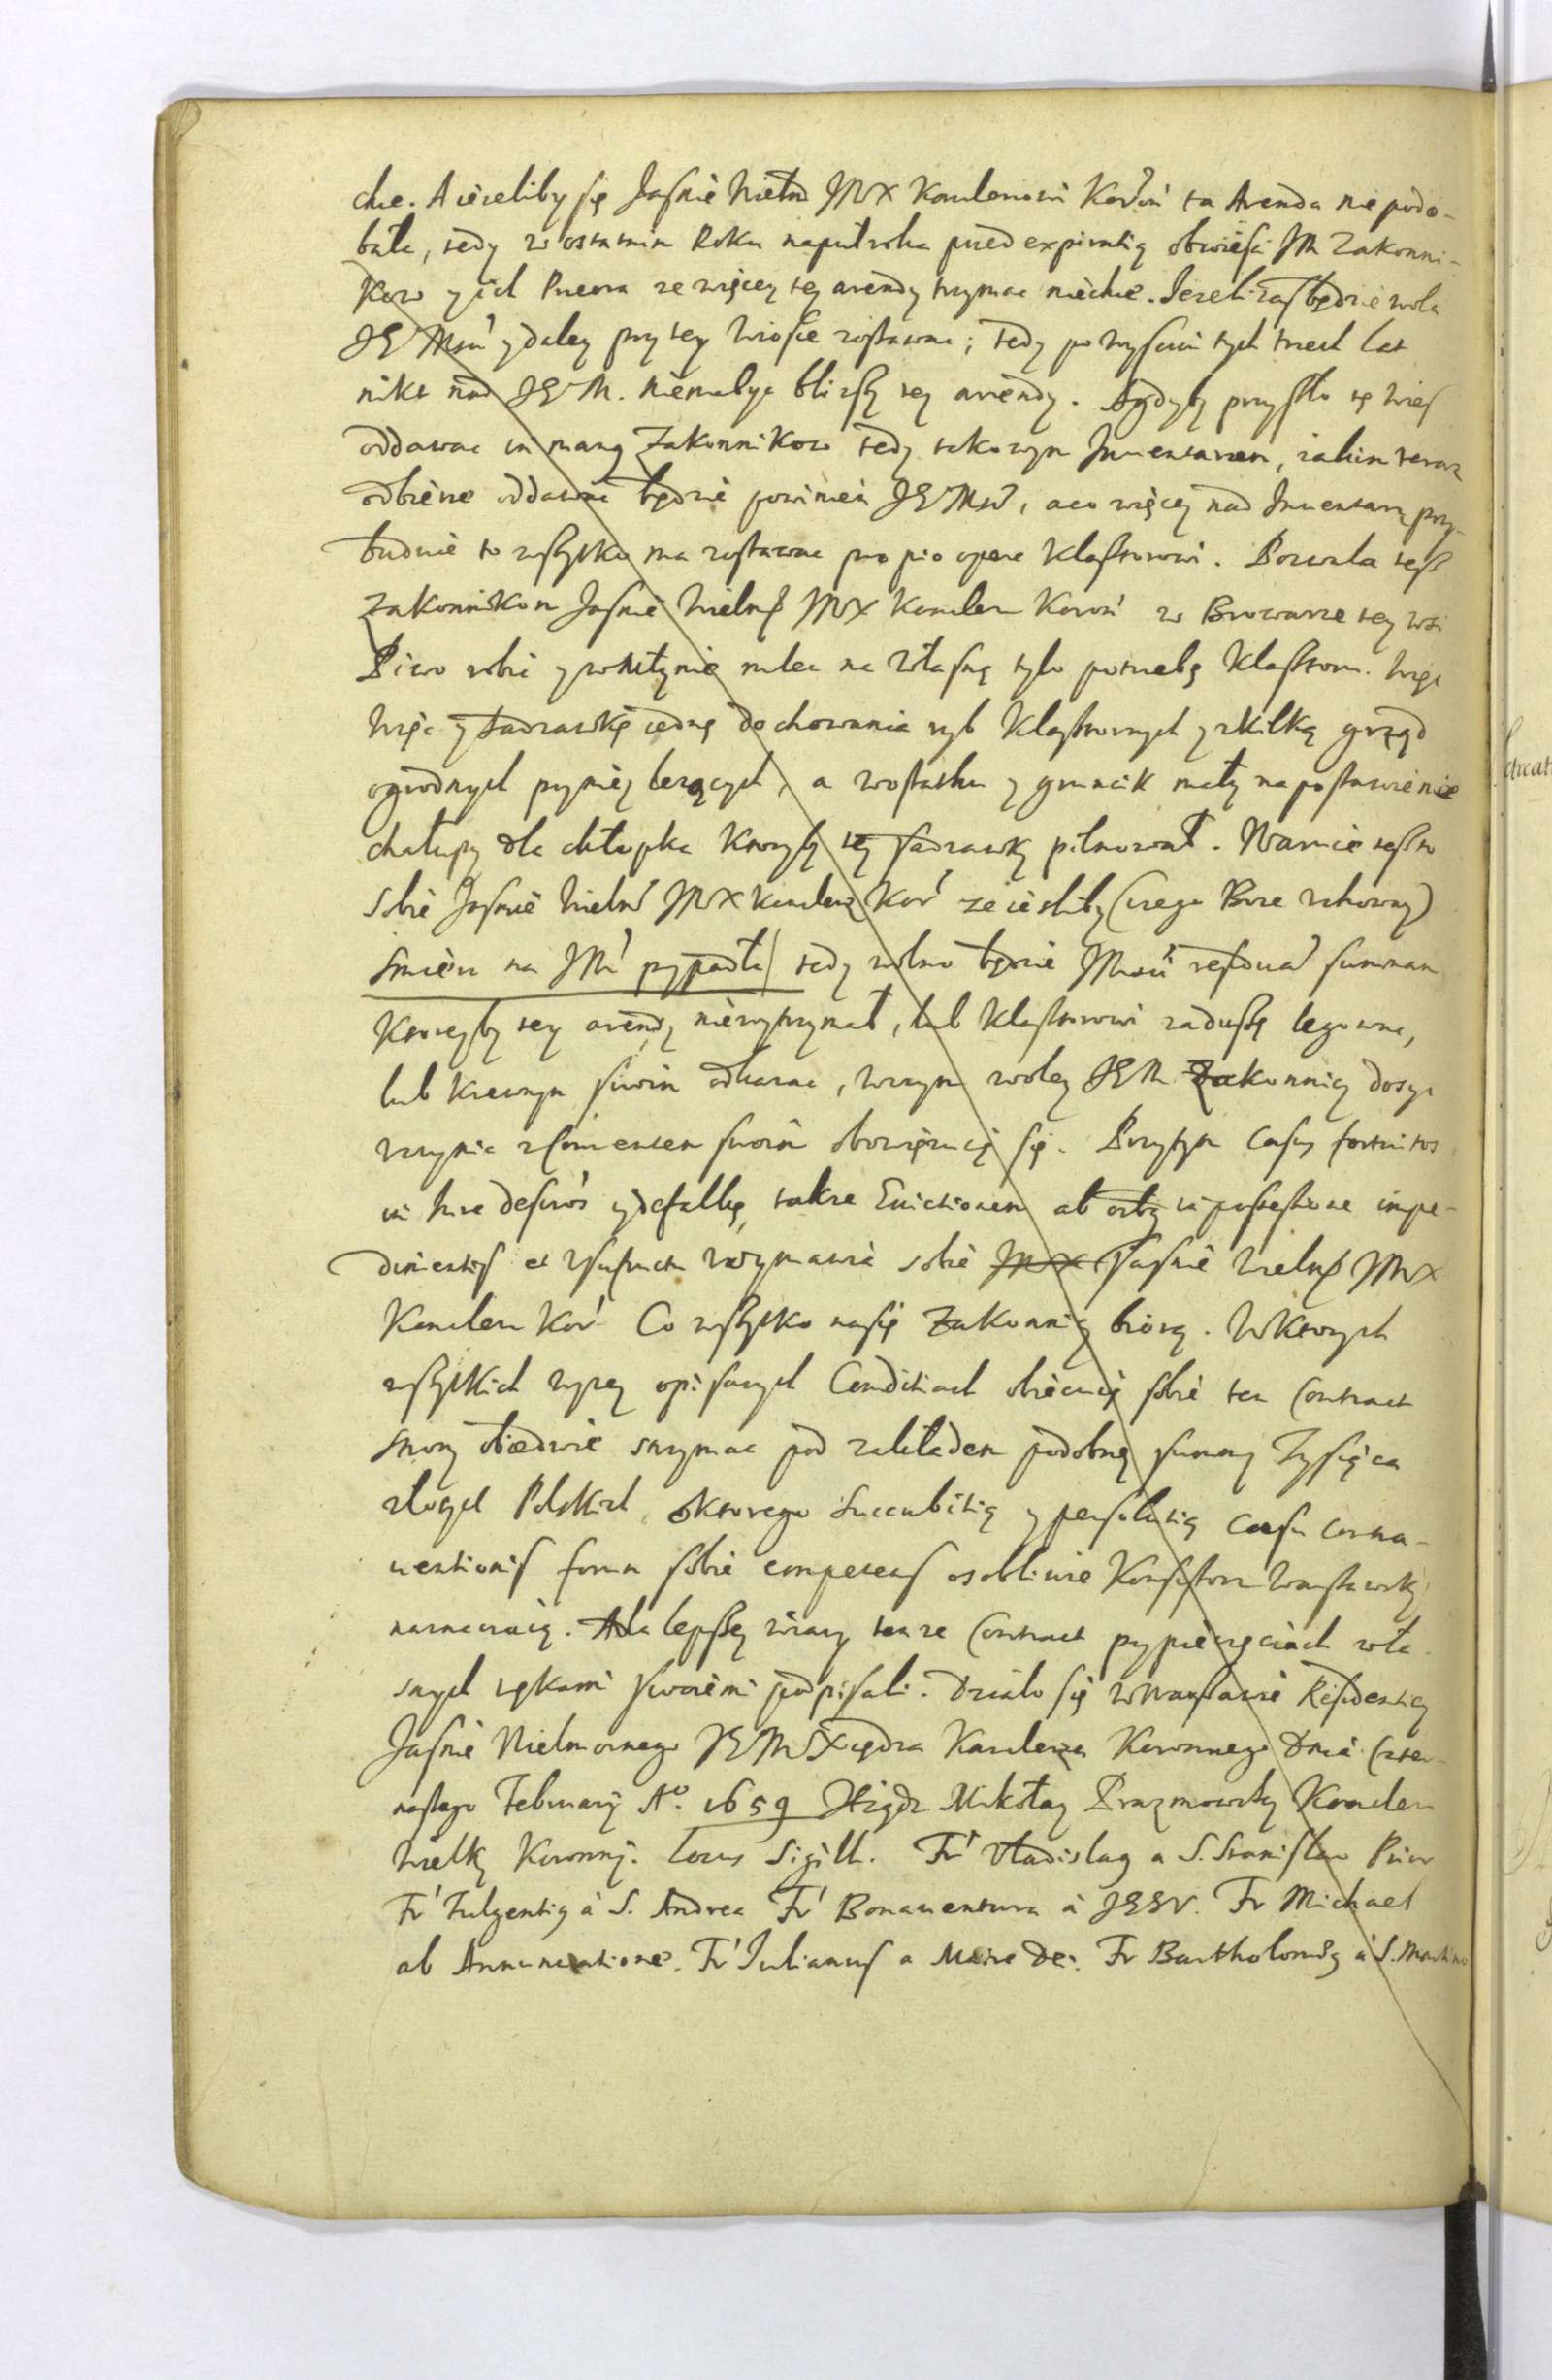 chce. A ieżeliby się Jaśnie Wielm̃ JMX Kanclerzowi Koroń ta Arenda nie podo-
bała, tedy w ostatnim Roku naputroka przed expiratią obwieści JM Zakonni-
kow y ich Przeora ze więcey tey arendy trzymac niechce. Jezeli zas będzie wola
JE Msci y daley przy tey Wiosce zostawac; tedy po wysciu tych trzech lat
nikt nad JEM. niemabyc bliższy tey arendy. Agdyby przyszło tę wieś
oddawac in manỹ Zakonnikow tedy takowym Inwentarzem, iakim teraz
odbierze oddawac będzie powinien JEMść, aco więcey nad Inwentarz przy-
buduie to wszytko ma zostawac pro pio opere Klasztorowi. Pozwala tesz
Zakonnikom Jaśnie Wielmy JMX Kanclerz Koroń w Browarze tey wsi
Piwo robic y w Młynie mleć na własną tylo potrzebę Klasztoru. Więc
Więc y sadzawkę iednę do chowania ryb Klasztornych y z kilką grząd
ogrodnych przy niey leżących, a wostatku y gruncik mały na postawienie
chałupy dla chłopka ktoryby tey sadzawky pilnował. Waruie tesz to
sobie Jaśnie Wielm̃ JMX Kanclerz Kor̃ ze iesliby (czego Boze uchoway)
smierc na JM przypadła tedy wolno będzie JMści residuã summam
ktoreyby tey arendy niewytrzymał, lub Klasztorowi zaduszę legowac,
lub krewnym swoim odkazac, wczym woley JEM Zakonnicy dosyc
uczynic z Conuentem swoim obowięzuią się. Przytym casus fortuitos
in Jure descrõs y defalkę, także Euictionem ab oibỹ in possessione impe-
dimentis et usufructu wymawia sobie Jaśnie Wielmy JMX
Kanclerz Kor̃ Co wszytko nasię Zakonnicy biorą. Wktorych
wszytkich wyzey opisanych Conditiach obiecuią sobie ten Contract
strony obiedwie trzymac pod zakładem podobney summy Tysiąca
złotych Polskich, oktorego Succubitią y persolutią casu contra-
uentionis forum sobie competens osobliwie Konsistorz Warszawsky
naznaczaią. Dla lepszey wiary tenze Contract przy pieczęciach wła-
snych rękami swoiemi podpisali. Działo się w Warszawie Residentiey
Jaśnie Wielmoznego JEMXiędza Kanclerza Koronnego Dnia Czter-
nastego Februarij Aº. 1659 Xiądz Mikołay Prazmowsky Kanclerz
Wielky Koronny. Locus Sigill. Fr̃ Vladislaỹ a S. Stanislao Prior
Fr̃ Fulgentiỹ à S. Andrea Fr̃ Bonauentura à JESV. Fr Michael
ab Annunciatione. Fr̃ Iulianus a Matre Dei. Fr Bartholomeỹ à S. Martino